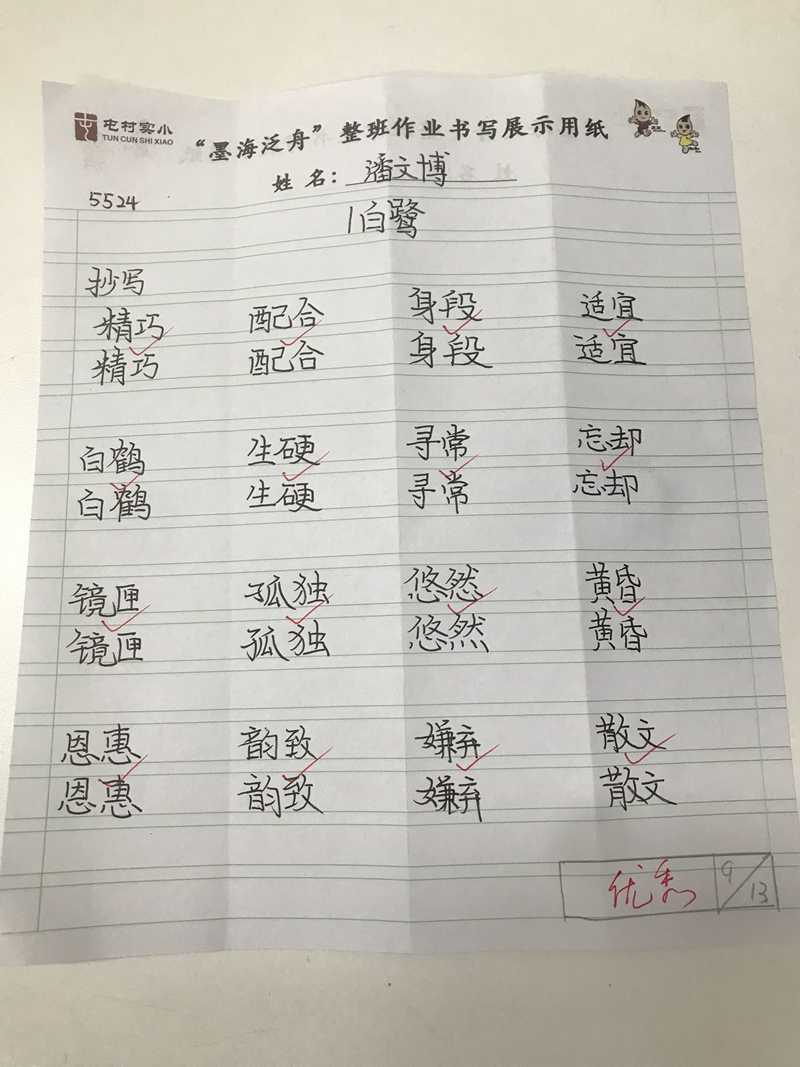 屯村实小
TUN CUN SHI XIAO
“墨海泛舟”整班作业书写展示用纸
姓名：潘文博
5524
1白鹭
抄写
精巧 配合 身段 适宜
精巧 配合 身段 适宜
白鹤 生硬 寻常 忘却
白鹤 生硬 寻常 忘却
镜匣 孤独 悠然 黄昏
镜匣 孤独 悠然 黄昏
恩惠 韵致 嫌弃 散文
恩惠 韵致 嫌弃 散文
优秀 9/13